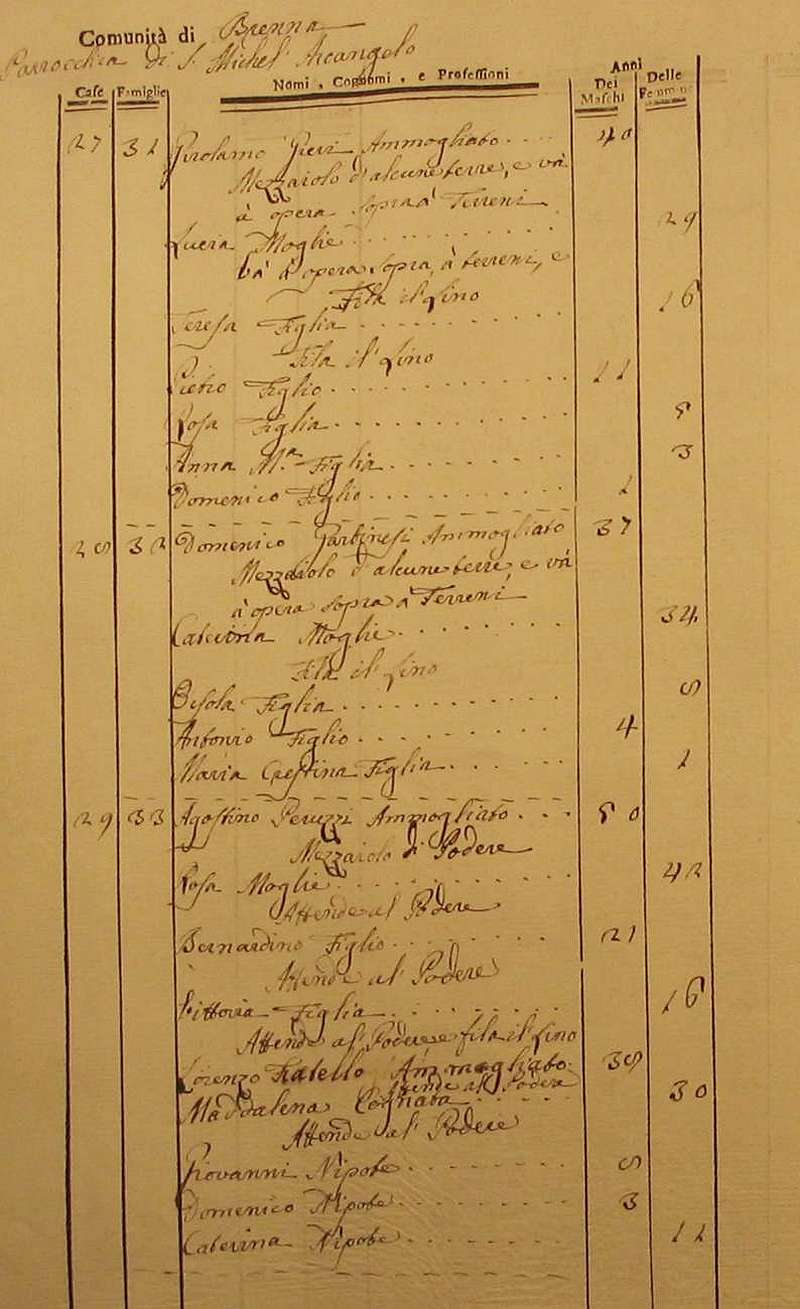 Comunità di Brenna
Parrocchia di S. Michel' Arcangelo
Case Famiglie Nomi, Cognomi, e Professioni Anni Dei Maschi Delle Femmine
27 31 Girolamo Pieri Ammogliato 40
Mezzaiolo d'alcune terre, e và
à opera sopra à Terreni
Lucia Moglie 29
và à opera sopra à terreni, e
Fila il lino
Teresa Figlia 16
Fila il lino
Pietro Figlio 11
Rosa Figlia
Anna M.a Figlia 3
Domenico Figlio 1
28 32 Domenico Ammogliato 37
Mezzaiolo d'alcune terre, e và
à opera sopra à Terreni
Caterina Moglie 34
Fila il lino
Figlia
Antonio Figlio 4
Maria Crestina Figlia 1
29 33 Agostino Peruzzi Ammogliato 50
Mezzaiolo di Podere
Rosa Moglie 42
Attende al Podere
Bernardino Figlio 21
Attende al Podere
Vittoria Figlia 16
Attende al Podere, e fila il lino
Lorenzo Fratello Ammogliato
Attende al Podere
Maddalena Cognata 30
Attende al Podere
Giovanni Nipote
Domenico Nipote 3
Caterina Nipote 11